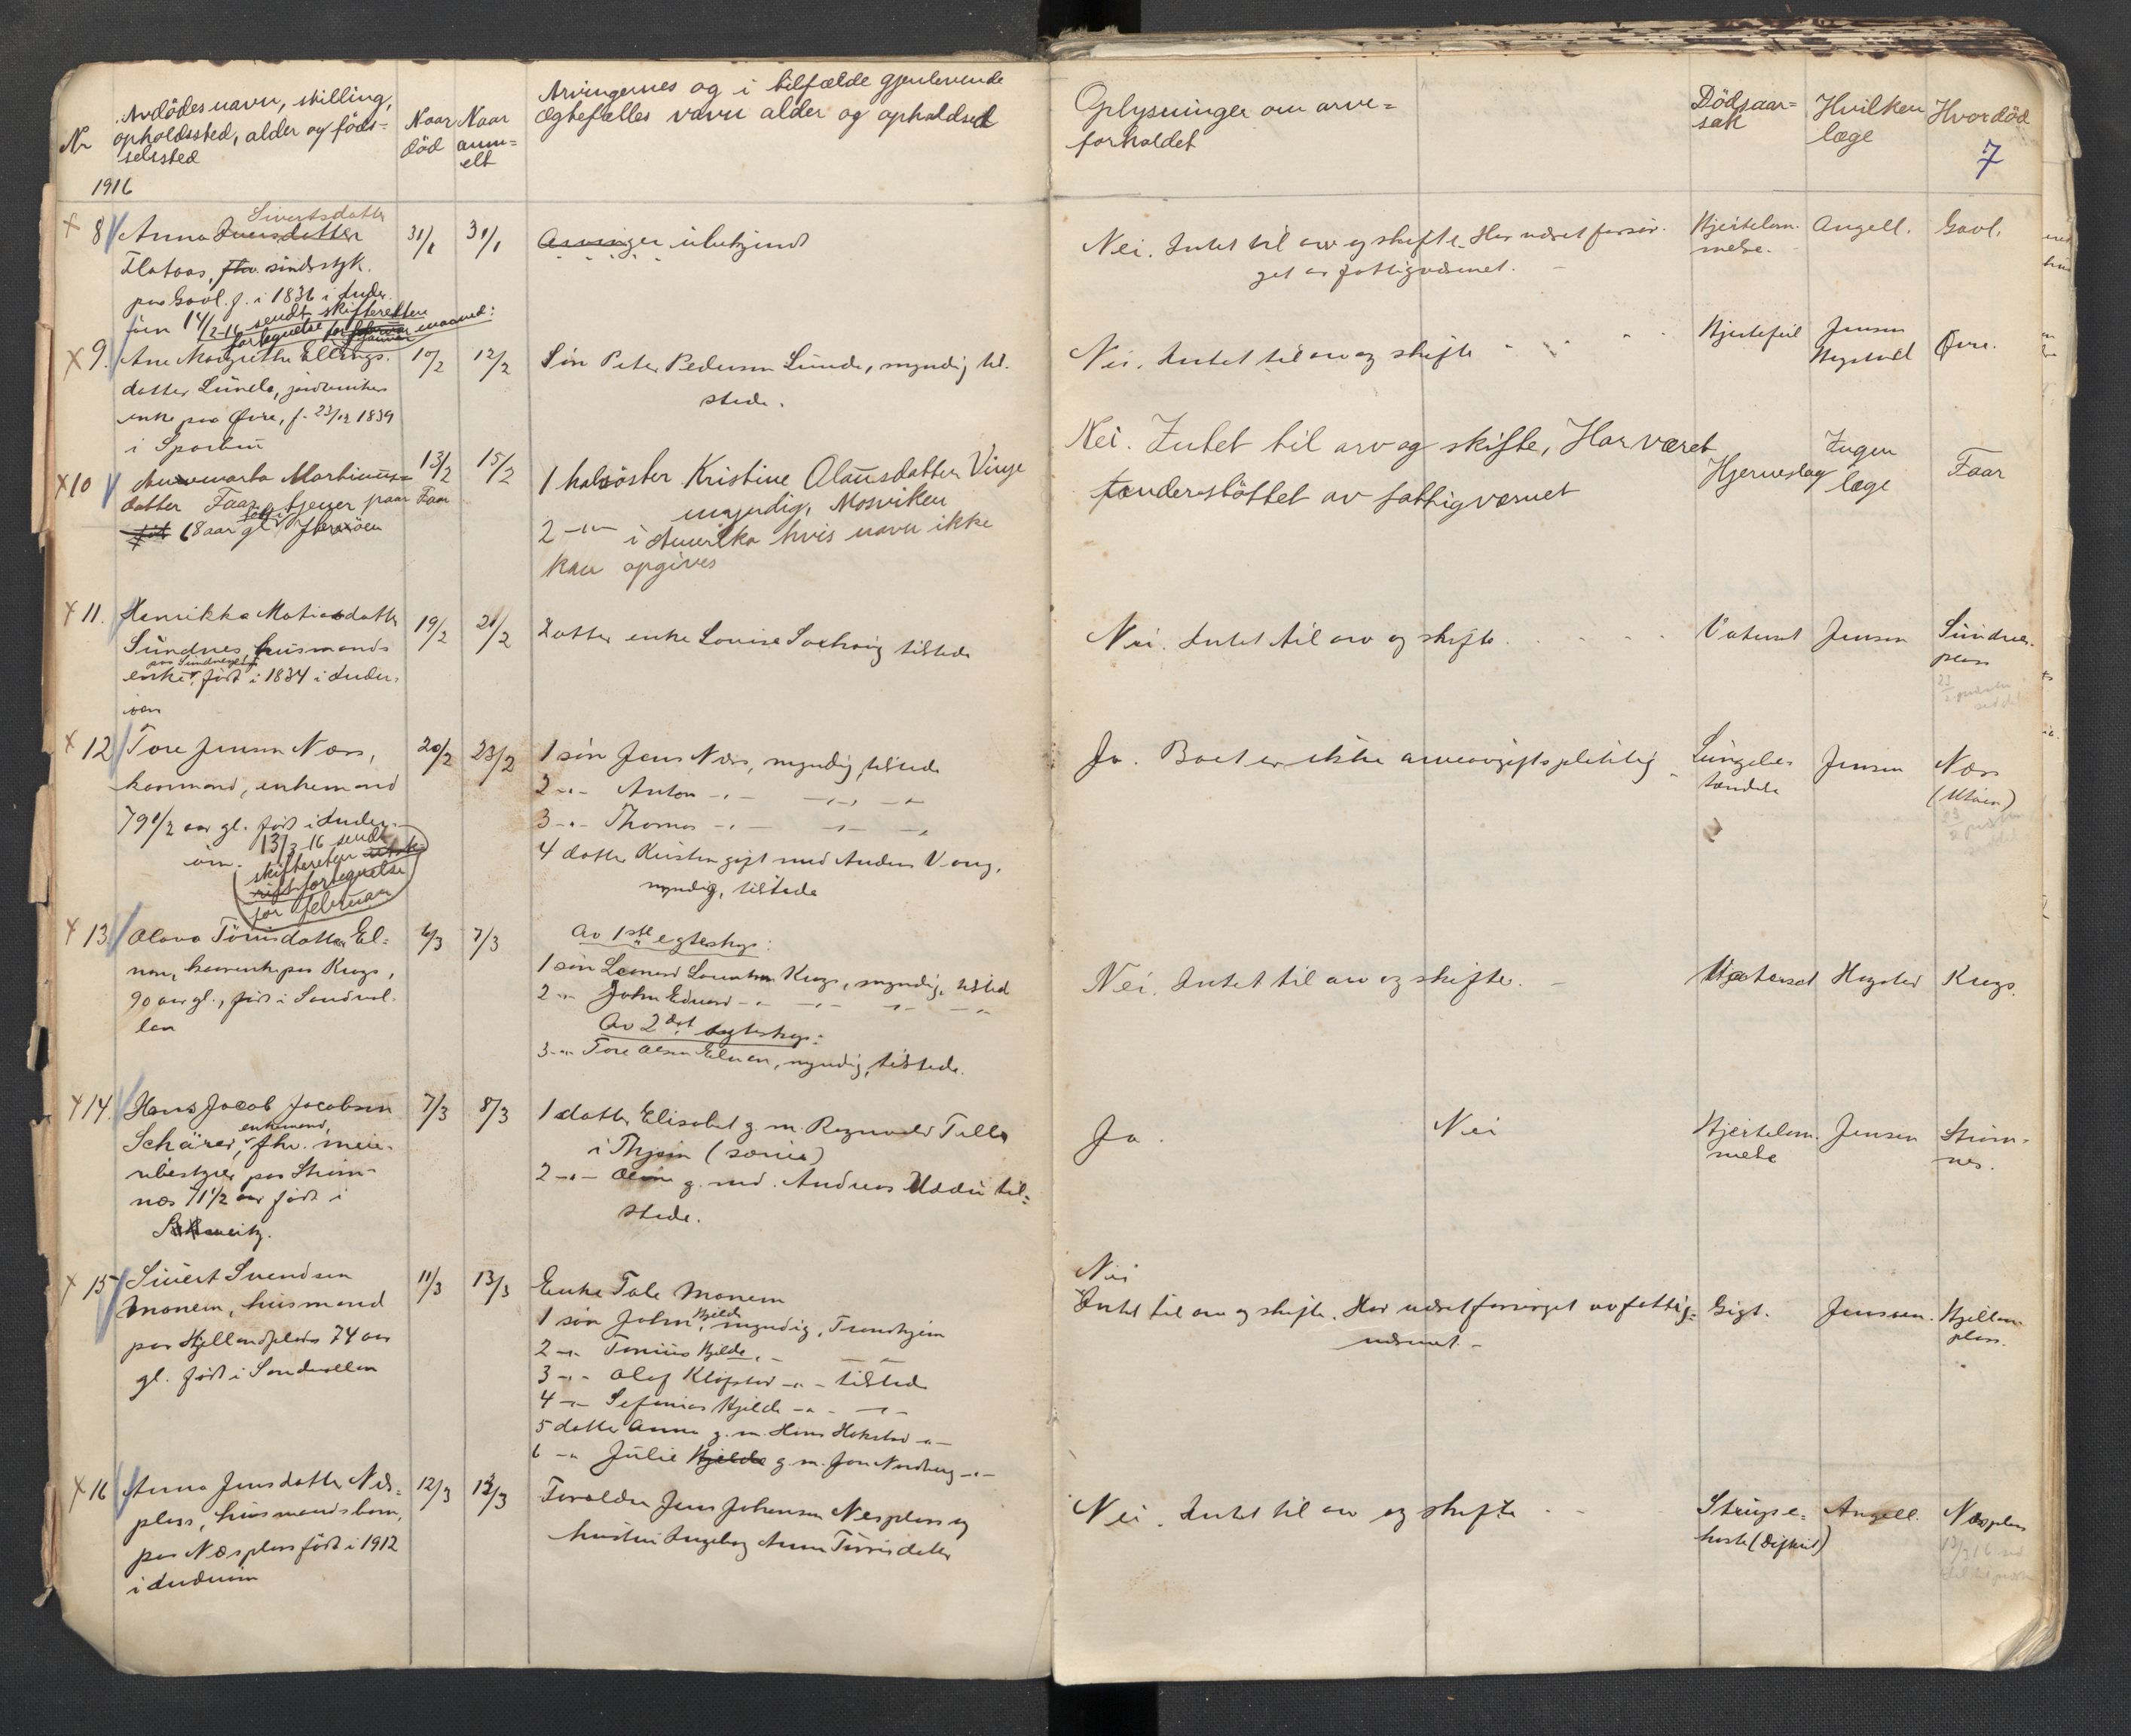 Nr
Avdödes navn, stilling,
opholdssted, alder og föds=
selssted
Naar
död
Naar
anm=
elt
Arvingernes og i tilfælde gjenlevende
Ægtefælles navn alder og opholdssted
Oplysninger om arve=
forholdet
Dödsaar=
sak
Hvilken
læge
Hvor död
7
1916
8 Anna Iversdatter Sivertsdatter
Flataas, fhv. sindssyk.
paa Gavl. f. i 1836 i Inder-
öen
31/1
31/1
Arvinger ubekjendt
Nei. Intet til arv og skifte. Har været forsör-
get av fattigvæsenet.
Hjertelam-
melse.
Angell.
Gavl.
14/2-16 sendt skifteretten
fortegnelse for januar maaned:
9. Ane Margrethe Ellings-
datter Lunde, jordbruker
enke paa Øvre, f. 23/12 1839
i Sparbu
10/2
12/2
Sön Peter Pedersen Lunde, myndig til-
stede.
Nei. Intet til arv og skifte
Hjertefeil
Jensen
Hogstad
Øvre.
10 Annemarta Martinus=
datter Faar, tjener paa Faar
född 68 aar gl
13/2
15/2
1 halvsöster Kristine Olausdatter Vinje
myndig, Mosviken
2 -"- i Amerika hvis navn ikke
kan opgives
Nei. Intet til arv og skifte, Har været
understöttet av fattigvæsnet
Hjerneslag
Ingen
læge
Faar
11. Henrikka Matiasdatter
Sundnes, husmands
enke paa Sundnesplass, født i 1834 i Inder-
öen
19/2
21/2
Datter enke Lovise Solhaug tilstede
Nei. Intet til arv og skifte.
Vatersot
Jensen
Sundnes-
plass
12 Tore Jensen Næss,
kaarmand, enkemand
79 1/2 aar gl. født i Inder-
öen.
20/2
23/2
1 sön Jens Næss, myndig, tilstede
2 -"- Anton -"- -"- -"-
3 -"- Thomas -"- -"- -"-
4 datter Kirsten gift med Anders Vang,
myndig, tilstede
Ja. Boet er ikke arveavgiftspliktig
Lungebe-
tændelse
Jensen
Næss
(Utöen)
13/3 16 sendt
skifteretten
fortegnelse
for februar
13. Olava Tönnisdatter El-
nan, kaarenke paa Krogs,
90 aar gl., født i Sandvol-
lan
6/3
7/3
Av 1ste egteskap:
1 sön Leonard Lorentsen Krogs, myndig, tilsted
2 -"- John Edvard -"- -"- -"- -"-
Av 2det egteskap:
3 -"- Tore Olsen Elnan, myndig, tilstede.
Nei. Intet til arv og skifte.
Vatersot
Hogstad
Krogs.
14. Hans Jacob Jacobsen
Schärer, enkemand, fhv. meie-
ribestyrer paa Ström-
næs 71 1/2 aar født i
Schweitz.
7/3
8/3
1 datter Elisabet g. m. Ragnvald Tella
i Thjem
2 -"- Oline g. med. Andreas Uddu til=
stede.
Ja.
Nei
Hjertelam-
melse
Jensen
Ström-
nes.
15 Sivert Svendsen
Monem, husmand
paa Hjellandplads 74 aar
gl. født i Sandvollan
11/3
13/3
Enke Tale Monem
1 sön John Hjelde, myndig, Trondhjem
2 -"- Tonius Hjelde, -"-
3 -"- Olaf Klopstad -"- tilstede
4 -"- Sefanias Hjelde -"- -"-
5 datter Anna g. m. Hans Hokstad -"-
6 -"- Julie Hjelde g. m. Jon Nordberg -"-
Nei
Intet til arv og skifte. Har været forsørget av fattig=
væsenet.
Gigt.
Jenssen.
Hjellan-
plass.
16 Anna Jensdatter Næs=
plass, husmandsbarn,
paa Næsplass født i 1912
i Inderöen
12/3
13/3
Foreldre Jens Johansen Nesplass og
hustru Ingeborg Anna Tönnisdatter
Nei. Intet til arv og skifte
Strupe=
hoste (difteri)
Angell.
Næsplass